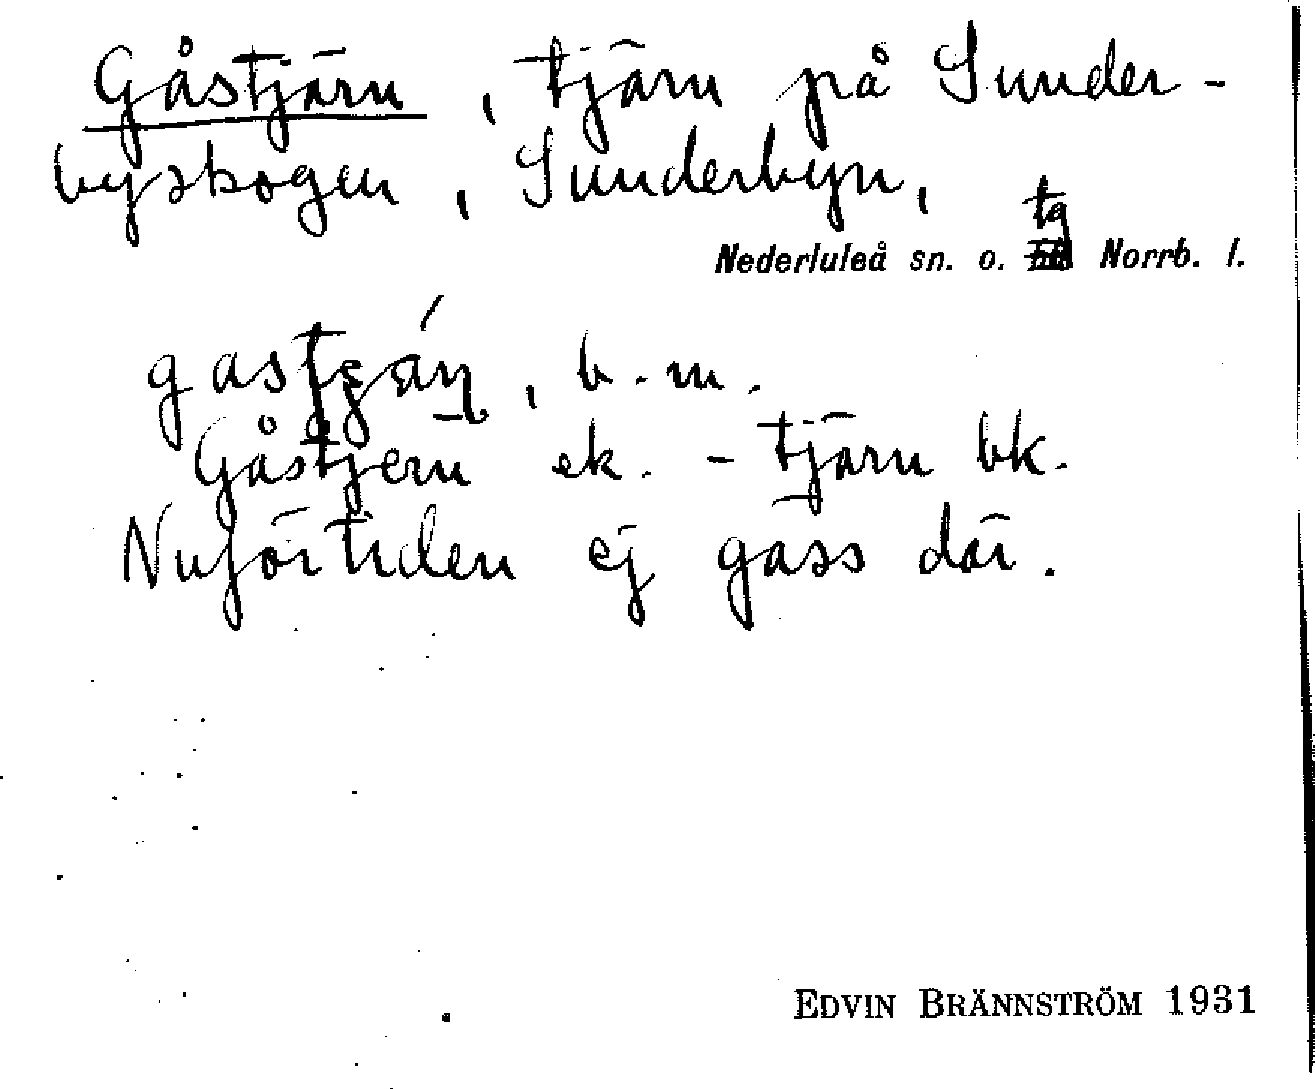 Gåstjärn, tjärn på Sunder-
byskogen, Sunderbyn,
tg
Nederluleå sn. o. Norrb. l.
, b. m.
Gåstjern ek. -tjärn bk.
Nuförtiden ej gäss där.
EDVIN BRÄNNSTRÖM 1931